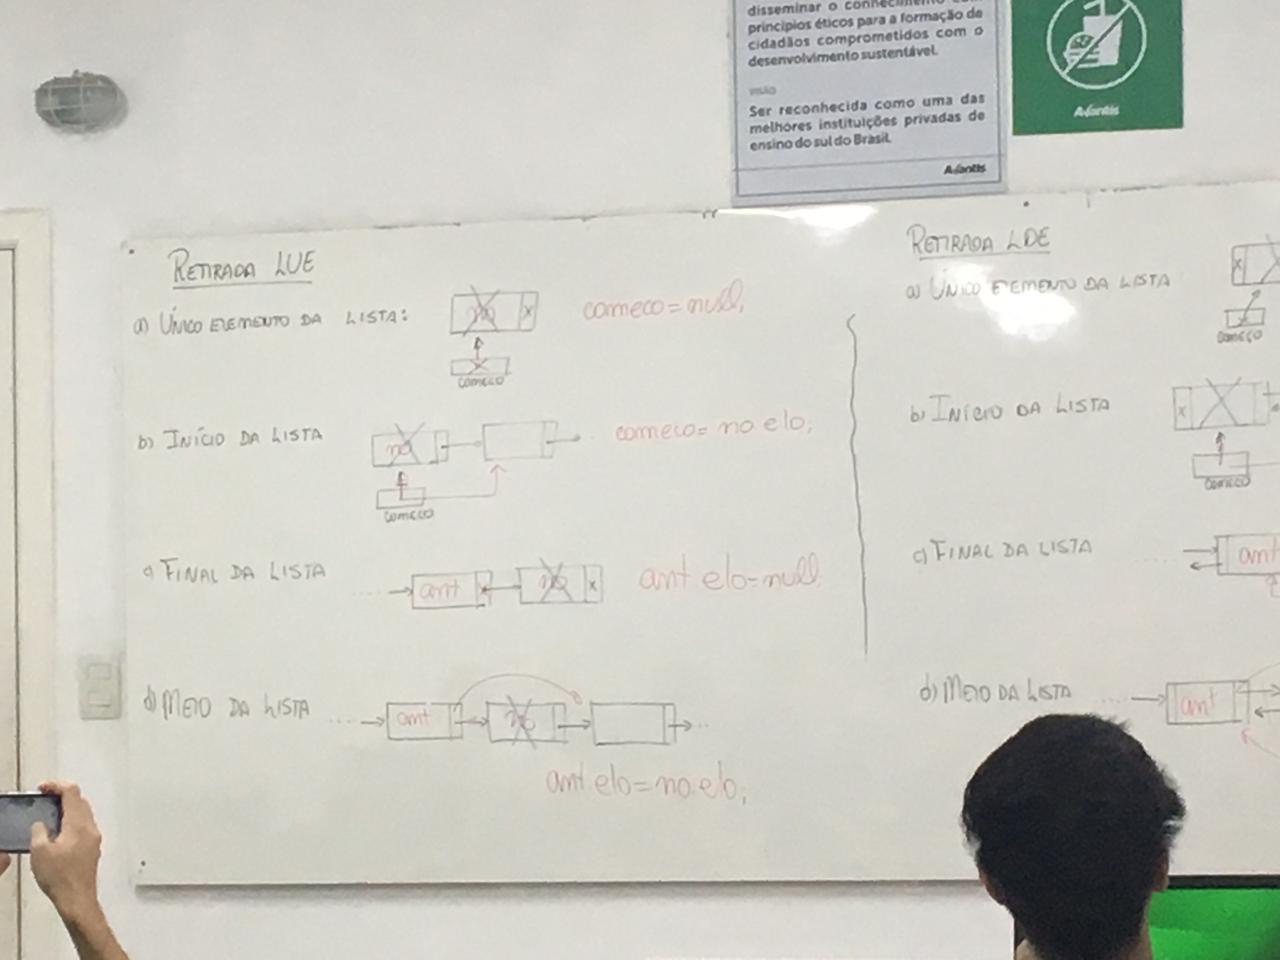 disseminar o conhecimento com
princípios éticos para a formação de
cidadãos comprometidos com o
desenvolvimento sustentável.
VISÃO
Ser reconhecida como uma das
melhores instituições privadas de
ensino do sul do Brasil.
Avantis
Avantis
RETIRADA LUE
a) ÚNICO ELEMENTO DA LISTA:
no
x
comeco = null;
COMECO
b) INÍCIO DA LISTA
no
comeco = no.elo;
COMECO
c) FINAL DA LISTA
ant
no
x
ant.elo = null;
d) MEIO DA LISTA
ant
no
ant.elo = no.elo;
RETIRADA LDE
a) ÚNICO ELEMENTO DA LISTA
x
COMEÇO
b) INÍCIO DA LISTA
x
COMEÇO
c) FINAL DA LISTA
ant
d) MEIO DA LISTA
ant